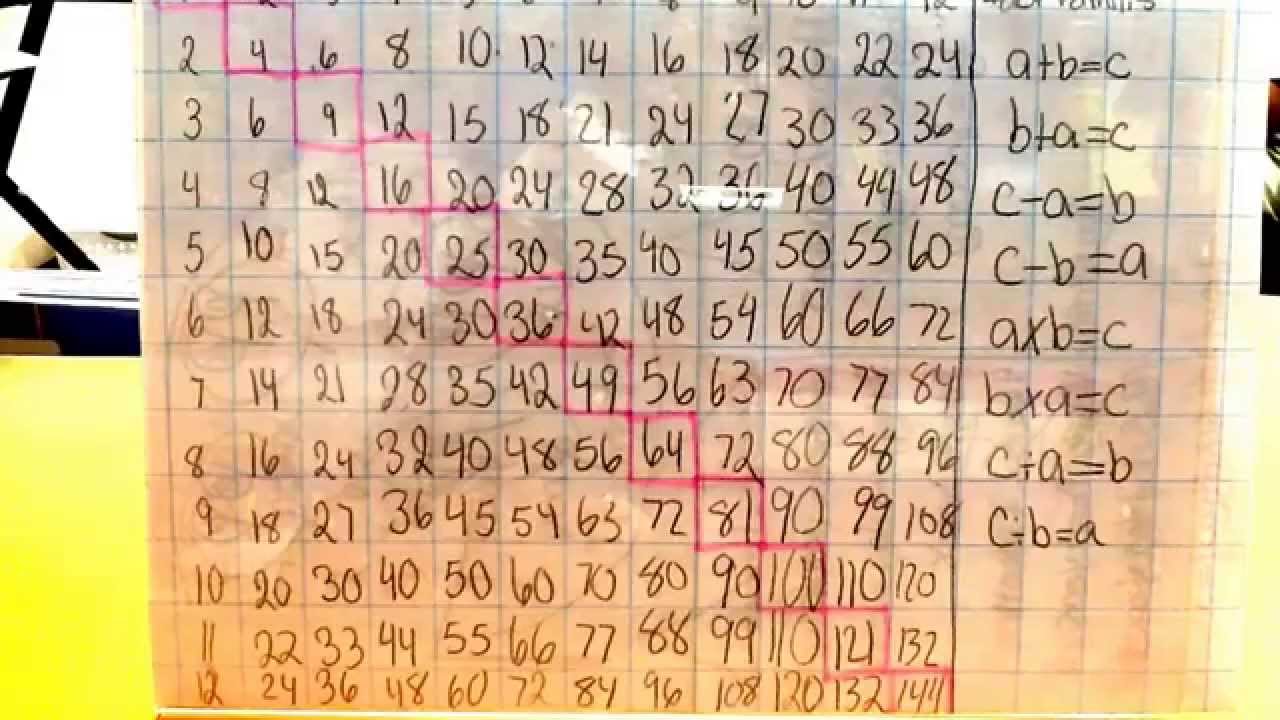 2 4 6 8 10 12 14 16 18 20 22 24 a+b=c
3 6 9 12 15 18 21 24 27 30 33 36 b+a=c
4 8 12 16 20 24 28 32 36 40 44 48 c-a=b
5 10 15 20 25 30 35 40 45 50 55 60 c-b=a
6 12 18 24 30 36 42 48 54 60 66 72 axb=c
7 14 21 28 35 42 49 56 63 70 77 84 bxa=c
8 16 24 32 40 48 56 64 72 80 88 96 c÷a=b
9 18 27 36 45 54 63 72 81 90 99 108 c÷b=a
10 20 30 40 50 60 70 80 90 100 110 120
11 22 33 44 55 66 77 88 99 110 121 132
12 24 36 48 60 72 84 96 108 120 132 144